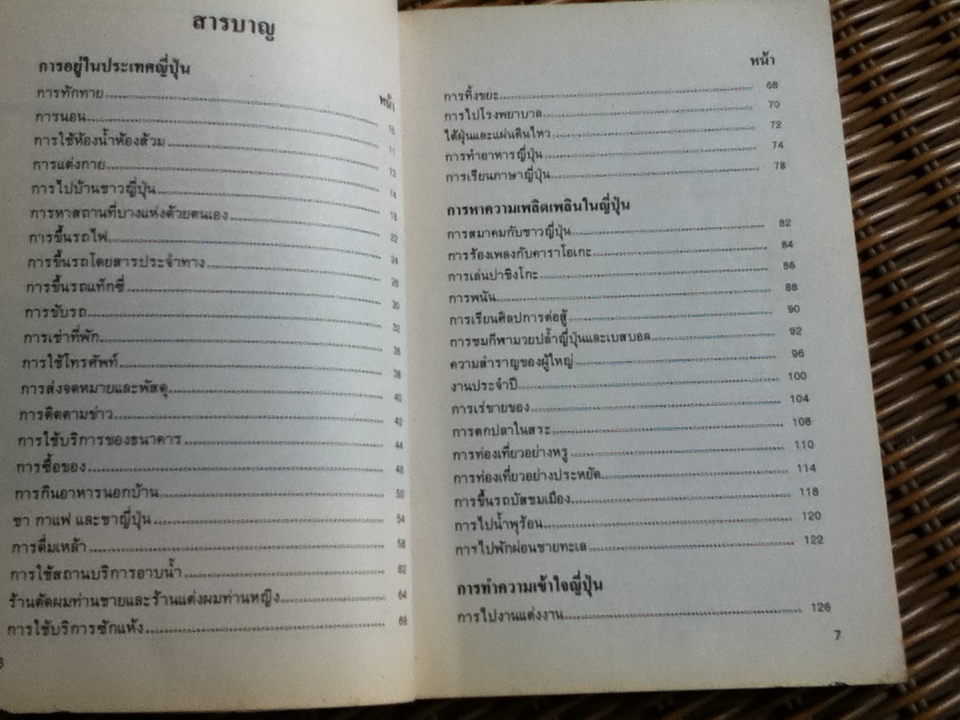 สารบาญ
การอยู่ในประเทศญี่ปุ่น
หน้า
การทักทาย 10
การนอน 11
การใช้ห้องน้ำห้องส้วม 12
การแต่งกาย 14
การไปบ้านชาวญี่ปุ่น 18
การหาสถานที่บางแห่งด้วยตนเอง 22
การขึ้นรถไฟ 24
การขึ้นรถโดยสารประจำทาง 28
การขึ้นรถแท๊กซี่ 30
การขับรถ 32
การเช่าที่พัก 36
การใช้โทรศัพท์ 38
การส่งจดหมายและพัสดุ 40
การติดตามข่าว 42
การใช้บริการของธนาคาร 44
การซื้อของ 48
การกินอาหารนอกบ้าน 50
ชา กาแฟ และชาญี่ปุ่น 54
การดื่มเหล้า 58
การใช้สถานบริการอาบน้ำ 62
ร้านตัดผมท่านชายและร้านแต่งผมท่านหญิง 64
การใช้บริการซักแห้ง 66
หน้า
การทิ้งขยะ 68
การไปโรงพยาบาล 70
ไต้ฝุ่นและแผ่นดินไหว 72
การทำอาหารญี่ปุ่น 74
การเรียนภาษาญี่ปุ่น 78
การหาความเพลิดเพลินในญี่ปุ่น
การสมาคมกับชาวญี่ปุ่น 82
การร้องเพลงกับคาราโอเกะ 84
การเล่นปาชิงโกะ 86
การพนัน 88
การเรียนศิลปการต่อสู้ 90
การชมกีฬามวยปล้ำญี่ปุ่นและเบสบอล 92
ความสำราญของผู้ใหญ่ 96
งานประจำปี 100
การเร่ขายของ 104
การตกปลาในสวะ 108
การท่องเที่ยวอย่างหรู 110
การท่องเที่ยวอย่างประหยัด 114
การขึ้นรถบัสชมเมือง 118
การไปน้ำพุร้อน 120
การไปพักผ่อนชายทะเล 122
การทำความเข้าใจญี่ปุ่น
การไปงานแต่งงาน 126
7